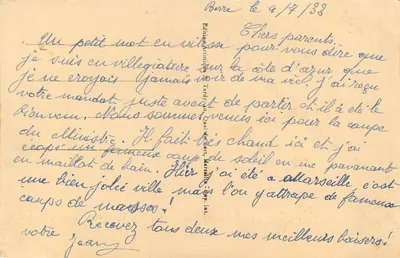 Berre le 4/7/38
Chers parents.
Un petit mot en vitesse pour vous dire que
je suis en villégiature sur la côte d'azur que
je ne croyais jamais voir de ma vie, j'ai reçu
votre mandat juste avant de partir et il a été le
bienvenu. Nous sommes venus ici pour la coupe
du Ministre. Il fait très chaud ici et j'ai
un fameux coup de soleil en me pavanant
en maillot de bain. Hier j'ai été a Marseille c'est
une bien jolie ville mais l'on y attrape de fameux
coups de masses!
Recevez tous deux mes meilleurs baisers!
votre
Jean